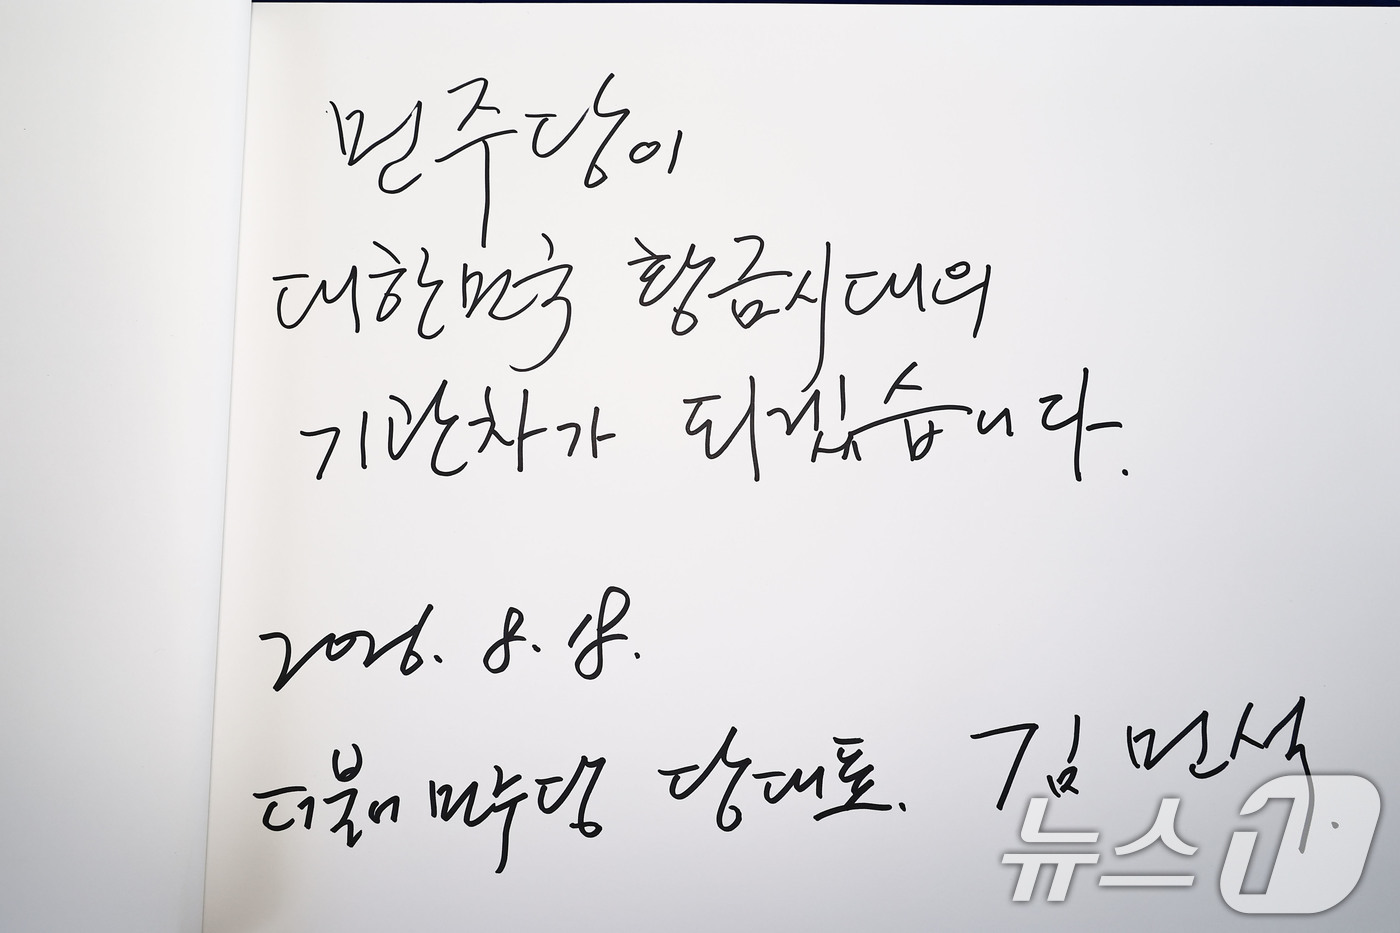 민주당이
대한민국 황금시대의
기관차가 되겠습니다.
2026. 8. 18.
더불어민주당 당대표. 김민석.
뉴스1